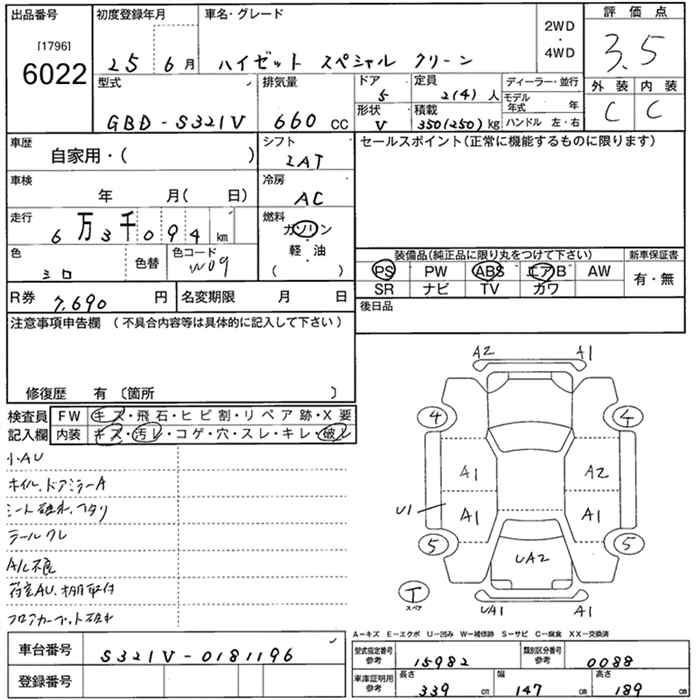 出品番号 初度登録年月 車名・グレード 2WD・4WD 評価点
[1796]
6022
25 6月 ハイゼット スペシャル クリーン 3.5
型式 排気量 ドア 5 定員 2(4)人 ディーラー・並行 外装 内装
モデル年式 年 C C
GBD-S321V 660 CC 形状 V 積載 350(250)kg ハンドル 左・右
車歴 シフト セールスポイント(正常に機能するものに限ります)
自家用・( ) 2AT
車検 冷房
年 月( 日) AC
走行 燃料
6万3千094km ガソリン・軽油
( )
色 色替 色コード 装備品(純正品に限り丸をつけて下さい) 新車保証書
シロ W09 PS PW ABS エアB AW 有・無
SR ナビ TV カワ
R券 7,690円 名変期限 月 日 後日品
注意事項申告欄 (不具合内容等は具体的に記入して下さい)
修復歴 有 〔箇所 〕
検査員記入欄 FW キズ・飛石・ヒビ割・リペア跡・X要
内装 キズ・汚レ・コゲ・穴・スレ・キレ・破レ
A2 A1
4 4
小AU
ホイル、ドアミラーA
A1 A2
シート破れ、ヘタリ
U1 A1 A1
ラールワレ
5 5
A/C不良
UA2
荷室AU、棚取付
T
スペア UA1 A1
フロアカーペット破れ
A-キズ E-エクボ U-凹み W-補修跡 S-サビ C-腐食 XX-交換済
車台番号 S321V-0181196
型式指定番号 参考 15982 類別区分番号 参考 0088
登録番号
車庫証明用 参考 長さ 339cm 幅 147cm 高さ 189cm